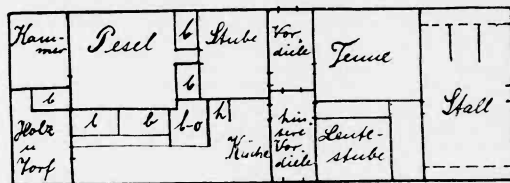 Kam-
mer
Pesel
b
Stube
Vor-
diele
Tenne
b
b
b
b
b-o
h
Stall
Holz
u
Torf
Küche
hin-
tere
Vor-
diele
Leute-
stube